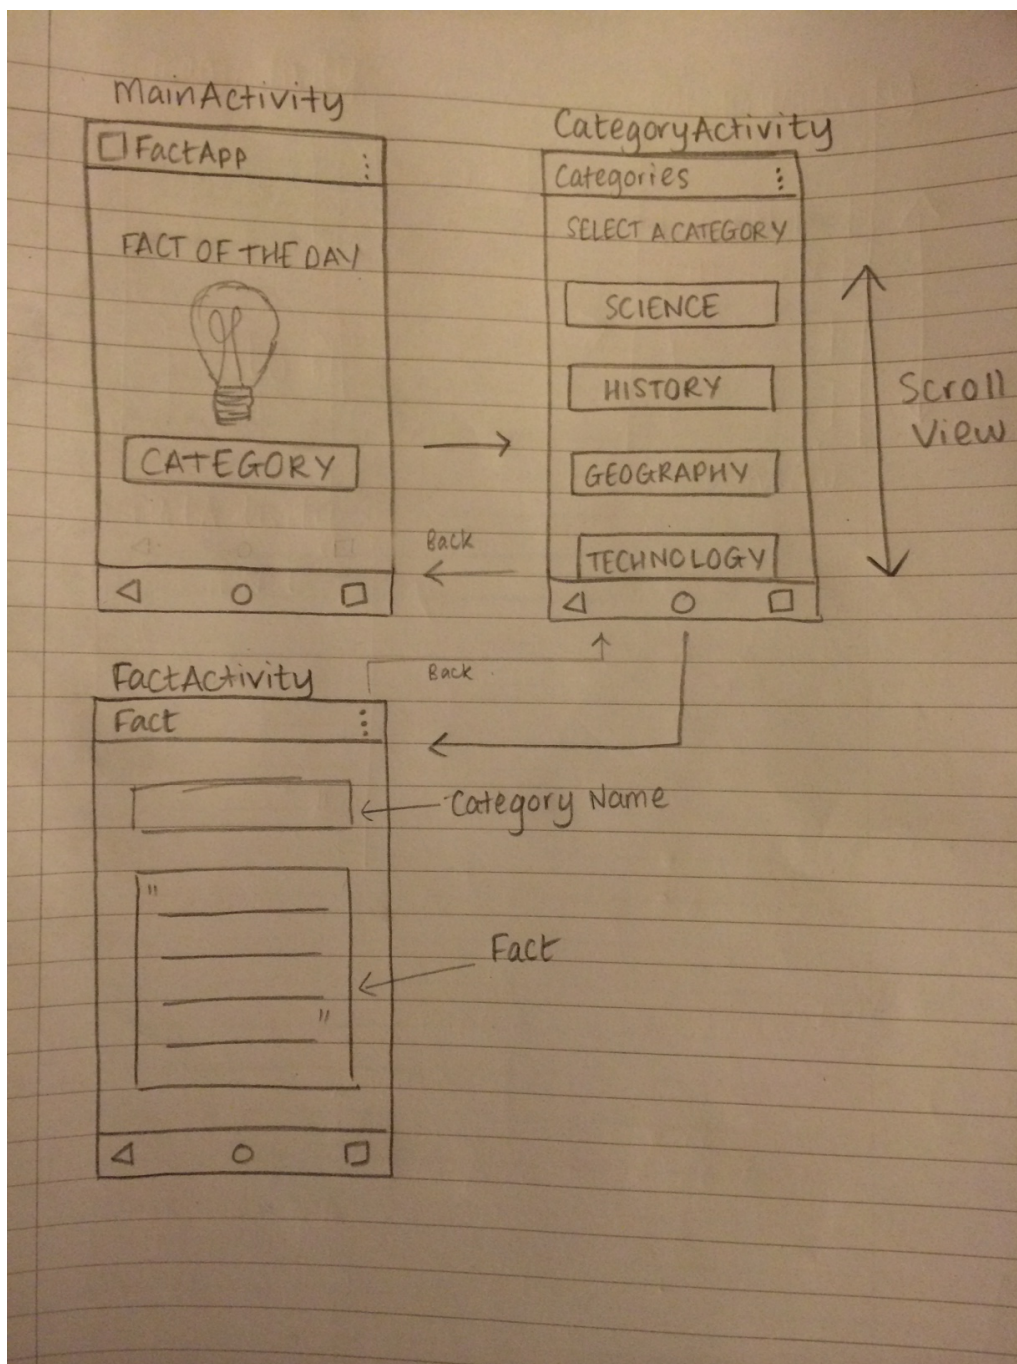 MainActivity
FactApp
FACT OF THE DAY
CATEGORY
CategoryActivity
Categories
SELECT A CATEGORY
SCIENCE
HISTORY
GEOGRAPHY
TECHNOLOGY
Scroll
View
Back
Back
FactActivity
Fact
Category Name
"
Fact
"